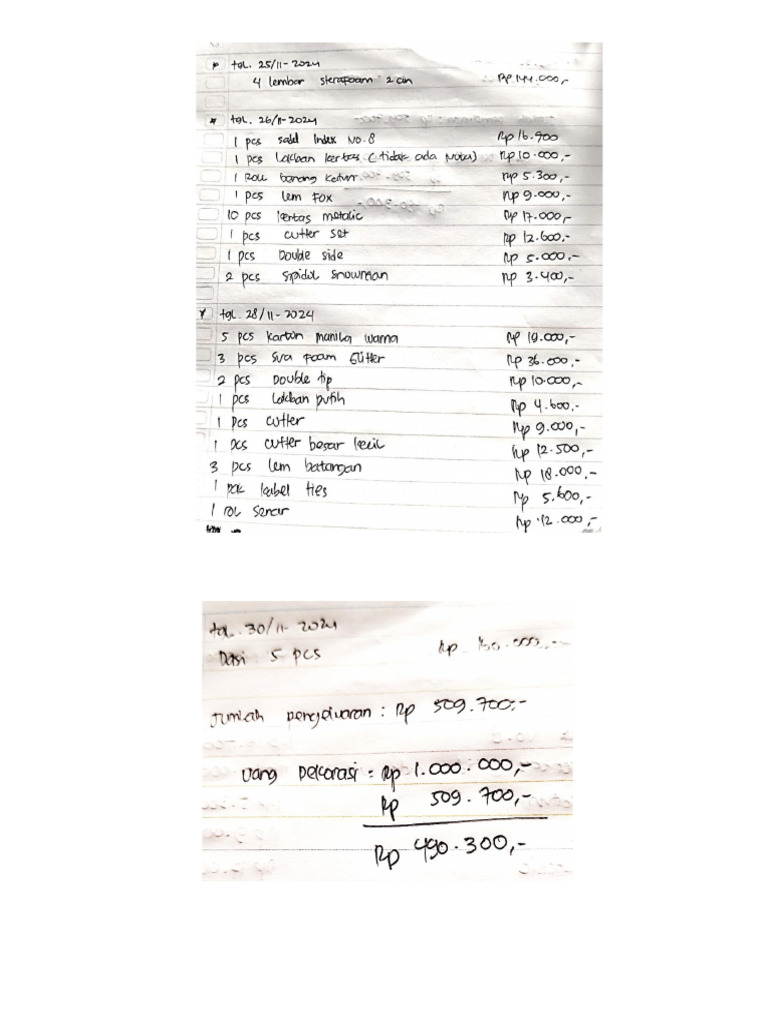 * tgl. 25/11-2024
4 lembar sterofoam 2 cm Rp 144.000,-
* tgl. 26/11-2024
1 pcs Index No.8 Rp 16.900
1 pcs Lakban kertas (tidak ada Nota) Rp 10.000,-
1 Roll benang Rp 5.300,-
1 pcs Lem FOX Rp 9.000,-
10 pcs kertas metalic Rp 17.000,-
1 pcs cutter set Rp 12.600,-
1 pcs Double side Rp 5.000,-
2 pcs Spidol Snowman Rp 3.400,-
* tgl. 28/11-2024
5 pcs karton manila warna Rp 19.000,-
3 pcs Eva Foam Glitter Rp 36.000,-
2 pcs Double tip Rp 10.000,-
1 pcs Lakban putih Rp 4.600,-
1 pcs cutter Rp 9.000,-
1 pcs cutter besar kecil Rp 12.500,-
3 pcs Lem batangan Rp 18.000,-
1 pak kabel ties Rp 5.600,-
1 rol Senar Rp 12.000,-
tgl. 30/11-2024
Dasi 5 pcs Rp 150.000,-
Jumlah pengeluaran : Rp 509.700,-
Uang Dekorasi = Rp 1.000.000,-
Rp 509.700,-
Rp 490.300,-